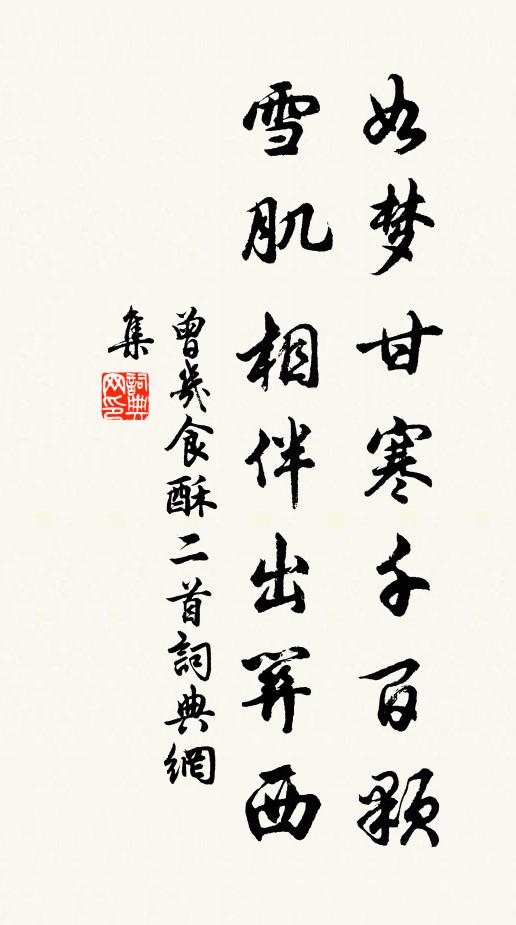 如梦甘寒千百颗
雪肌相伴出笄西
曾几食酥二首詞典網
集
詞典網印